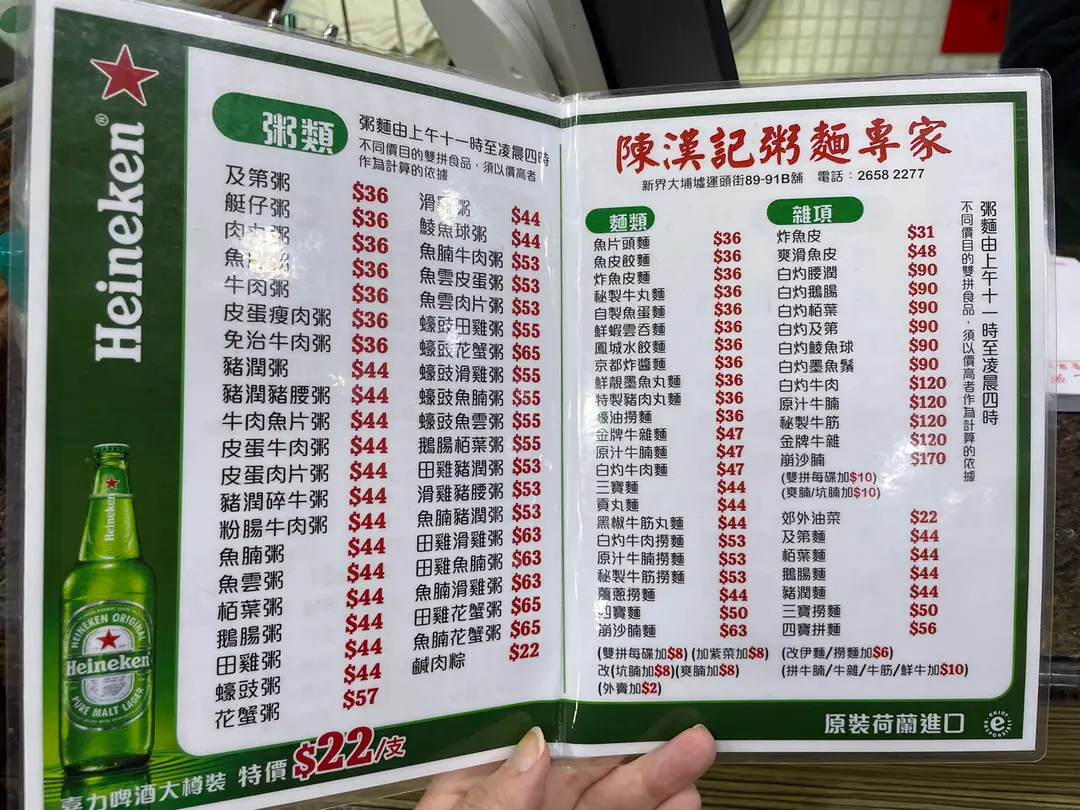 Heineken®
粥類
粥麵由上午十一時至凌晨四時
不同價目的雙拼食品，須以價高者
作為計算的依據
及第粥 $36
艇仔粥 $36
$36
$36
牛肉粥 $36
皮蛋瘦肉粥 $36
免治牛肉粥 $36
豬潤粥 $44
豬潤豬腰粥 $44
牛肉魚片粥 $44
皮蛋牛肉粥 $44
皮蛋肉片粥 $44
豬潤碎牛粥 $44
粉腸牛肉粥 $44
魚腩粥 $44
魚雲粥 $44
栢葉粥 $44
鵝腸粥 $44
田雞粥 $44
蠔豉粥 $44
花蟹粥 $57
滑雞粥 $44
鯪魚球粥 $44
魚腩牛肉粥 $53
魚雲皮蛋粥 $53
魚雲肉片粥 $53
蠔豉田雞粥 $55
蠔豉花蟹粥 $65
蠔豉滑雞粥 $55
蠔豉魚腩粥 $55
蠔豉魚雲粥 $55
鵝腸栢葉粥 $55
田雞豬潤粥 $53
滑雞豬腰粥 $53
魚腩豬潤粥 $53
田雞滑雞粥 $63
田雞魚腩粥 $63
魚腩滑雞粥 $63
田雞花蟹粥 $65
魚腩花蟹粥 $65
鹹肉粽 $22
Heineken
HEINEKEN ORIGINAL
Heineken
PURE MALT LAGER
喜力啤酒大樽裝 特價 $22/支
陳漢記粥麵專家
新界大埔墟運頭街89-91B舖 電話：2658 2277
麵類
魚片頭麵 $36
魚皮餃麵 $36
炸魚皮麵 $36
秘製牛丸麵 $36
自製魚蛋麵 $36
鮮蝦雲吞麵 $36
鳳城水餃麵 $36
京都炸醬麵 $36
鮮靚墨魚丸麵 $36
特製豬肉丸麵 $36
蠔油撈麵 $36
金牌牛雜麵 $47
原汁牛腩麵 $47
白灼牛肉麵 $47
三寶麵 $44
貢丸麵 $44
黑椒牛筋丸麵 $44
白灼牛肉撈麵 $53
原汁牛腩撈麵 $53
秘製牛筋撈麵 $53
薑蔥撈麵 $44
四寶麵 $50
崩沙腩麵 $63
(雙拼每碟加$8) (加紫菜加$8)
改(坑腩加$8)(爽腩加$8)
(外賣加$2)
雜項
炸魚皮 $31
爽滑魚皮 $48
白灼腰潤 $90
白灼鵝腸 $90
白灼栢葉 $90
白灼及第 $90
白灼鯪魚球 $90
白灼墨魚鬚 $90
白灼牛肉 $120
原汁牛腩 $120
秘製牛筋 $120
金牌牛雜 $120
崩沙腩 $170
(雙拼每碟加$10)
(爽腩/坑腩加$10)
郊外油菜 $22
及第麵 $44
栢葉麵 $44
鵝腸麵 $44
豬潤麵 $44
三寶撈麵 $50
四寶拼麵 $56
(改伊麵/撈麵加$6)
(拼牛腩/牛雜/牛筋/鮮牛加$10)
粥麵由上午十一時至凌晨四時
不同價目的雙拼食品，須以價高者作為計算的依據
原裝荷蘭進口